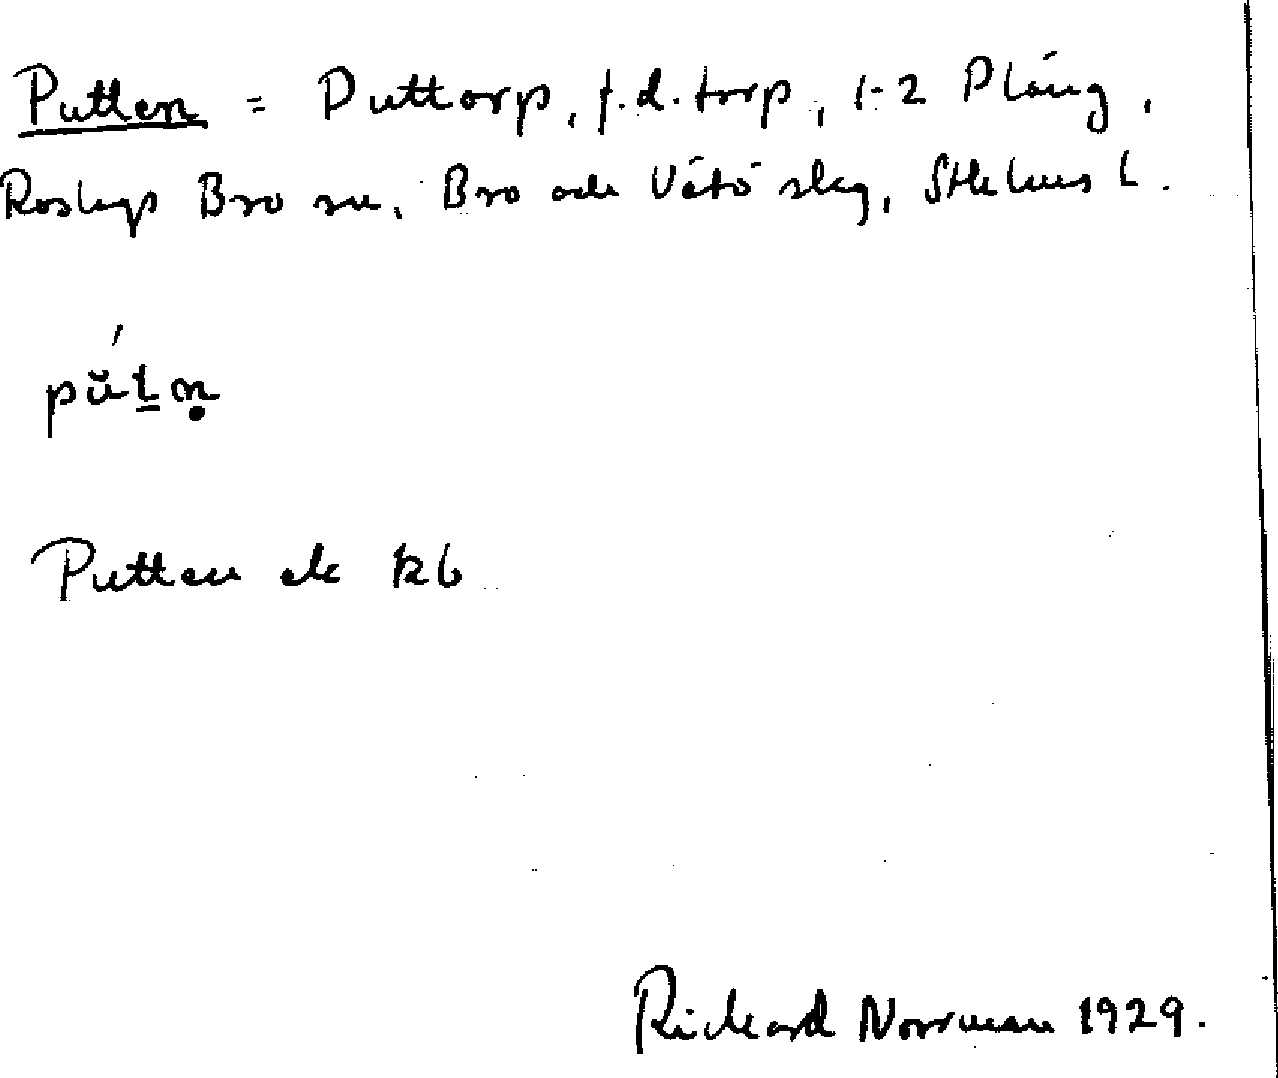 Putten = Puttorp, f.d. torp, 1-2 Pläng,
Roslags Bro sn, Bro och Vätö skg, Sthlms L.
pŭ́t̠n̥
Putten ek 126
Rickard Norrman 1929.